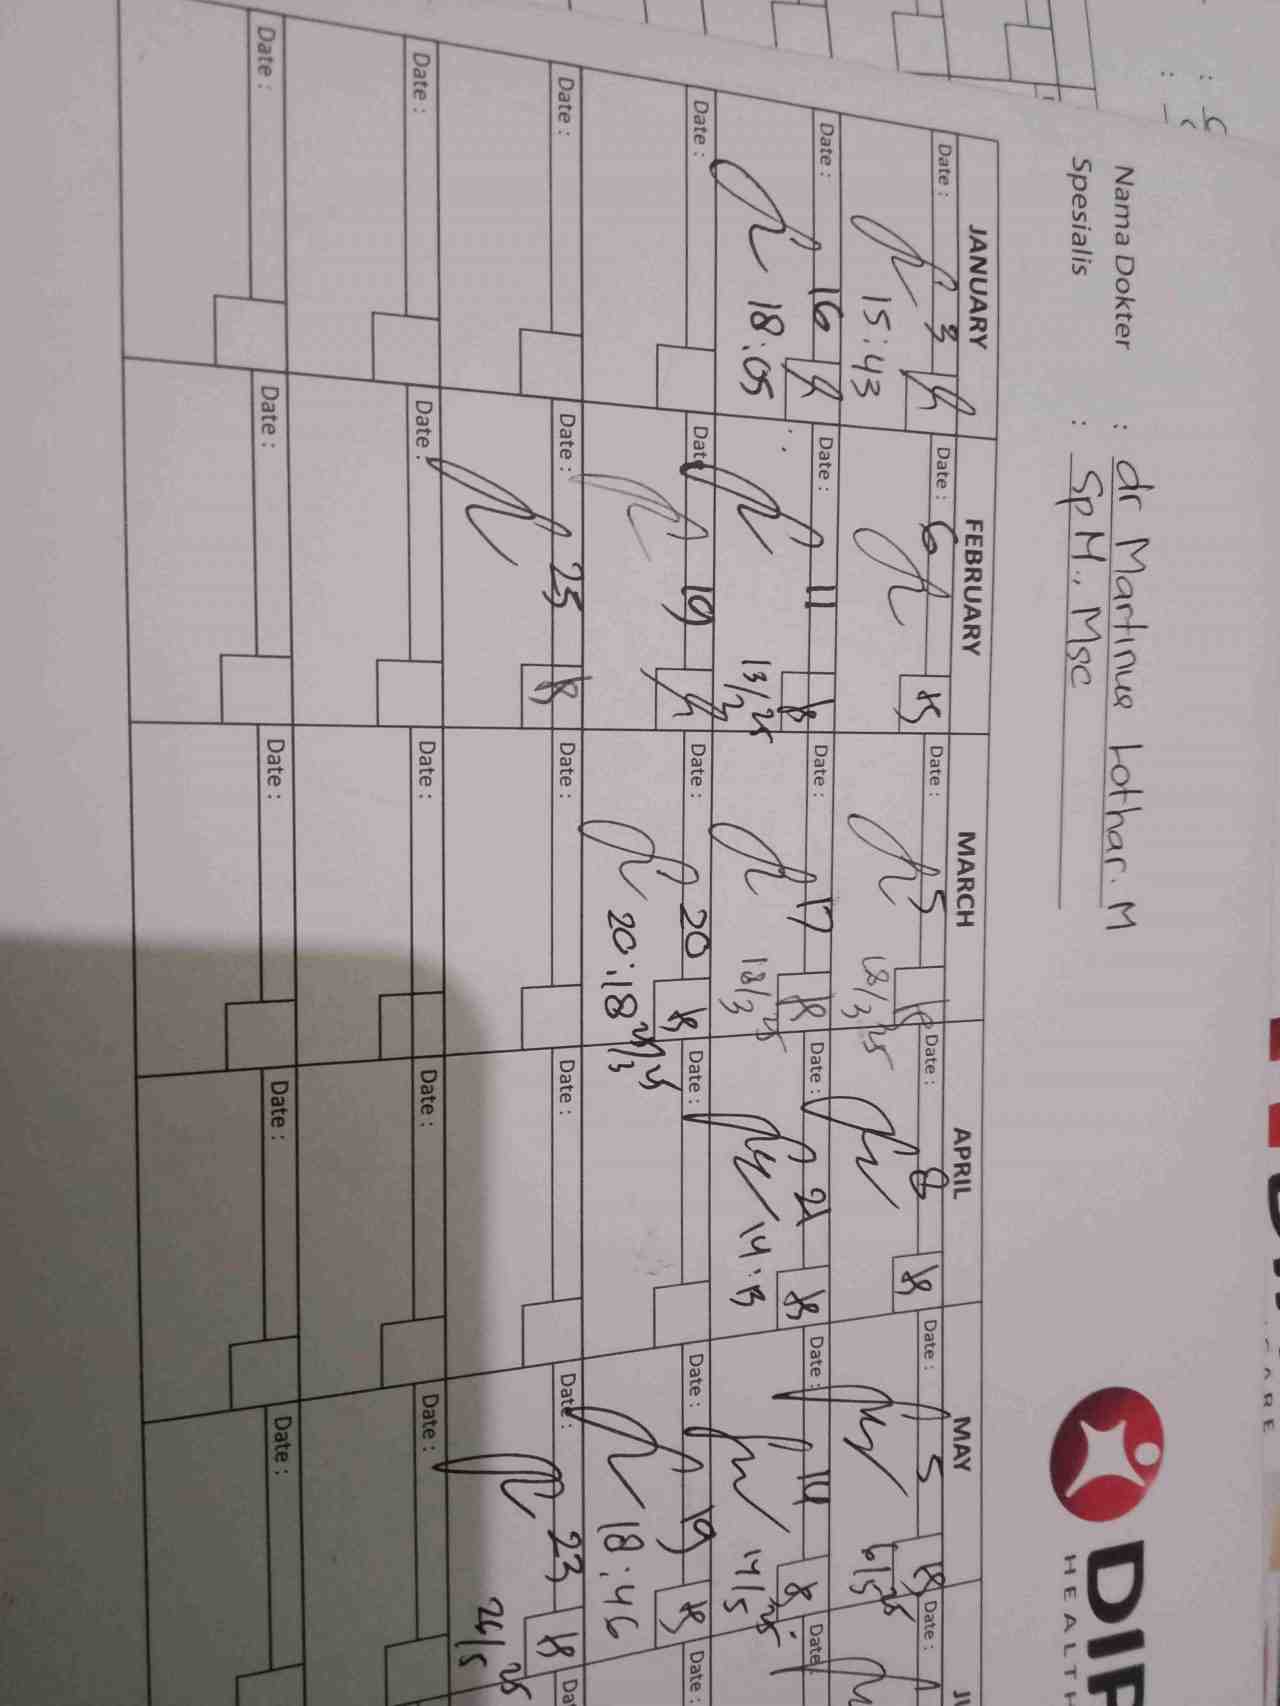 Nama Dokter : dr Martinus Lothar. M
Spesialis : SpM., Msc
DIP
HEALTH
JANUARY FEBRUARY MARCH APRIL MAY JU
Date : 3 Date : 6 Date : 5 Date : 8 Date : 5 Date :
15:43 18/3 25 6/5 25
Date : 16 Date : 11 Date : 17 Date : 21 Date : 14 Date
18:05 13/2 25 18/3 25 14:13 14/5 25
Date : Date 19 Date : 20 Date : Date : 19 Date :
20:18 25/3 25 18:46
Date : Date : 25 Date : Date : Date : 23 Dat
26/5 25
Date : Date : Date : Date : Date :
Date : Date : Date : Date : Date :